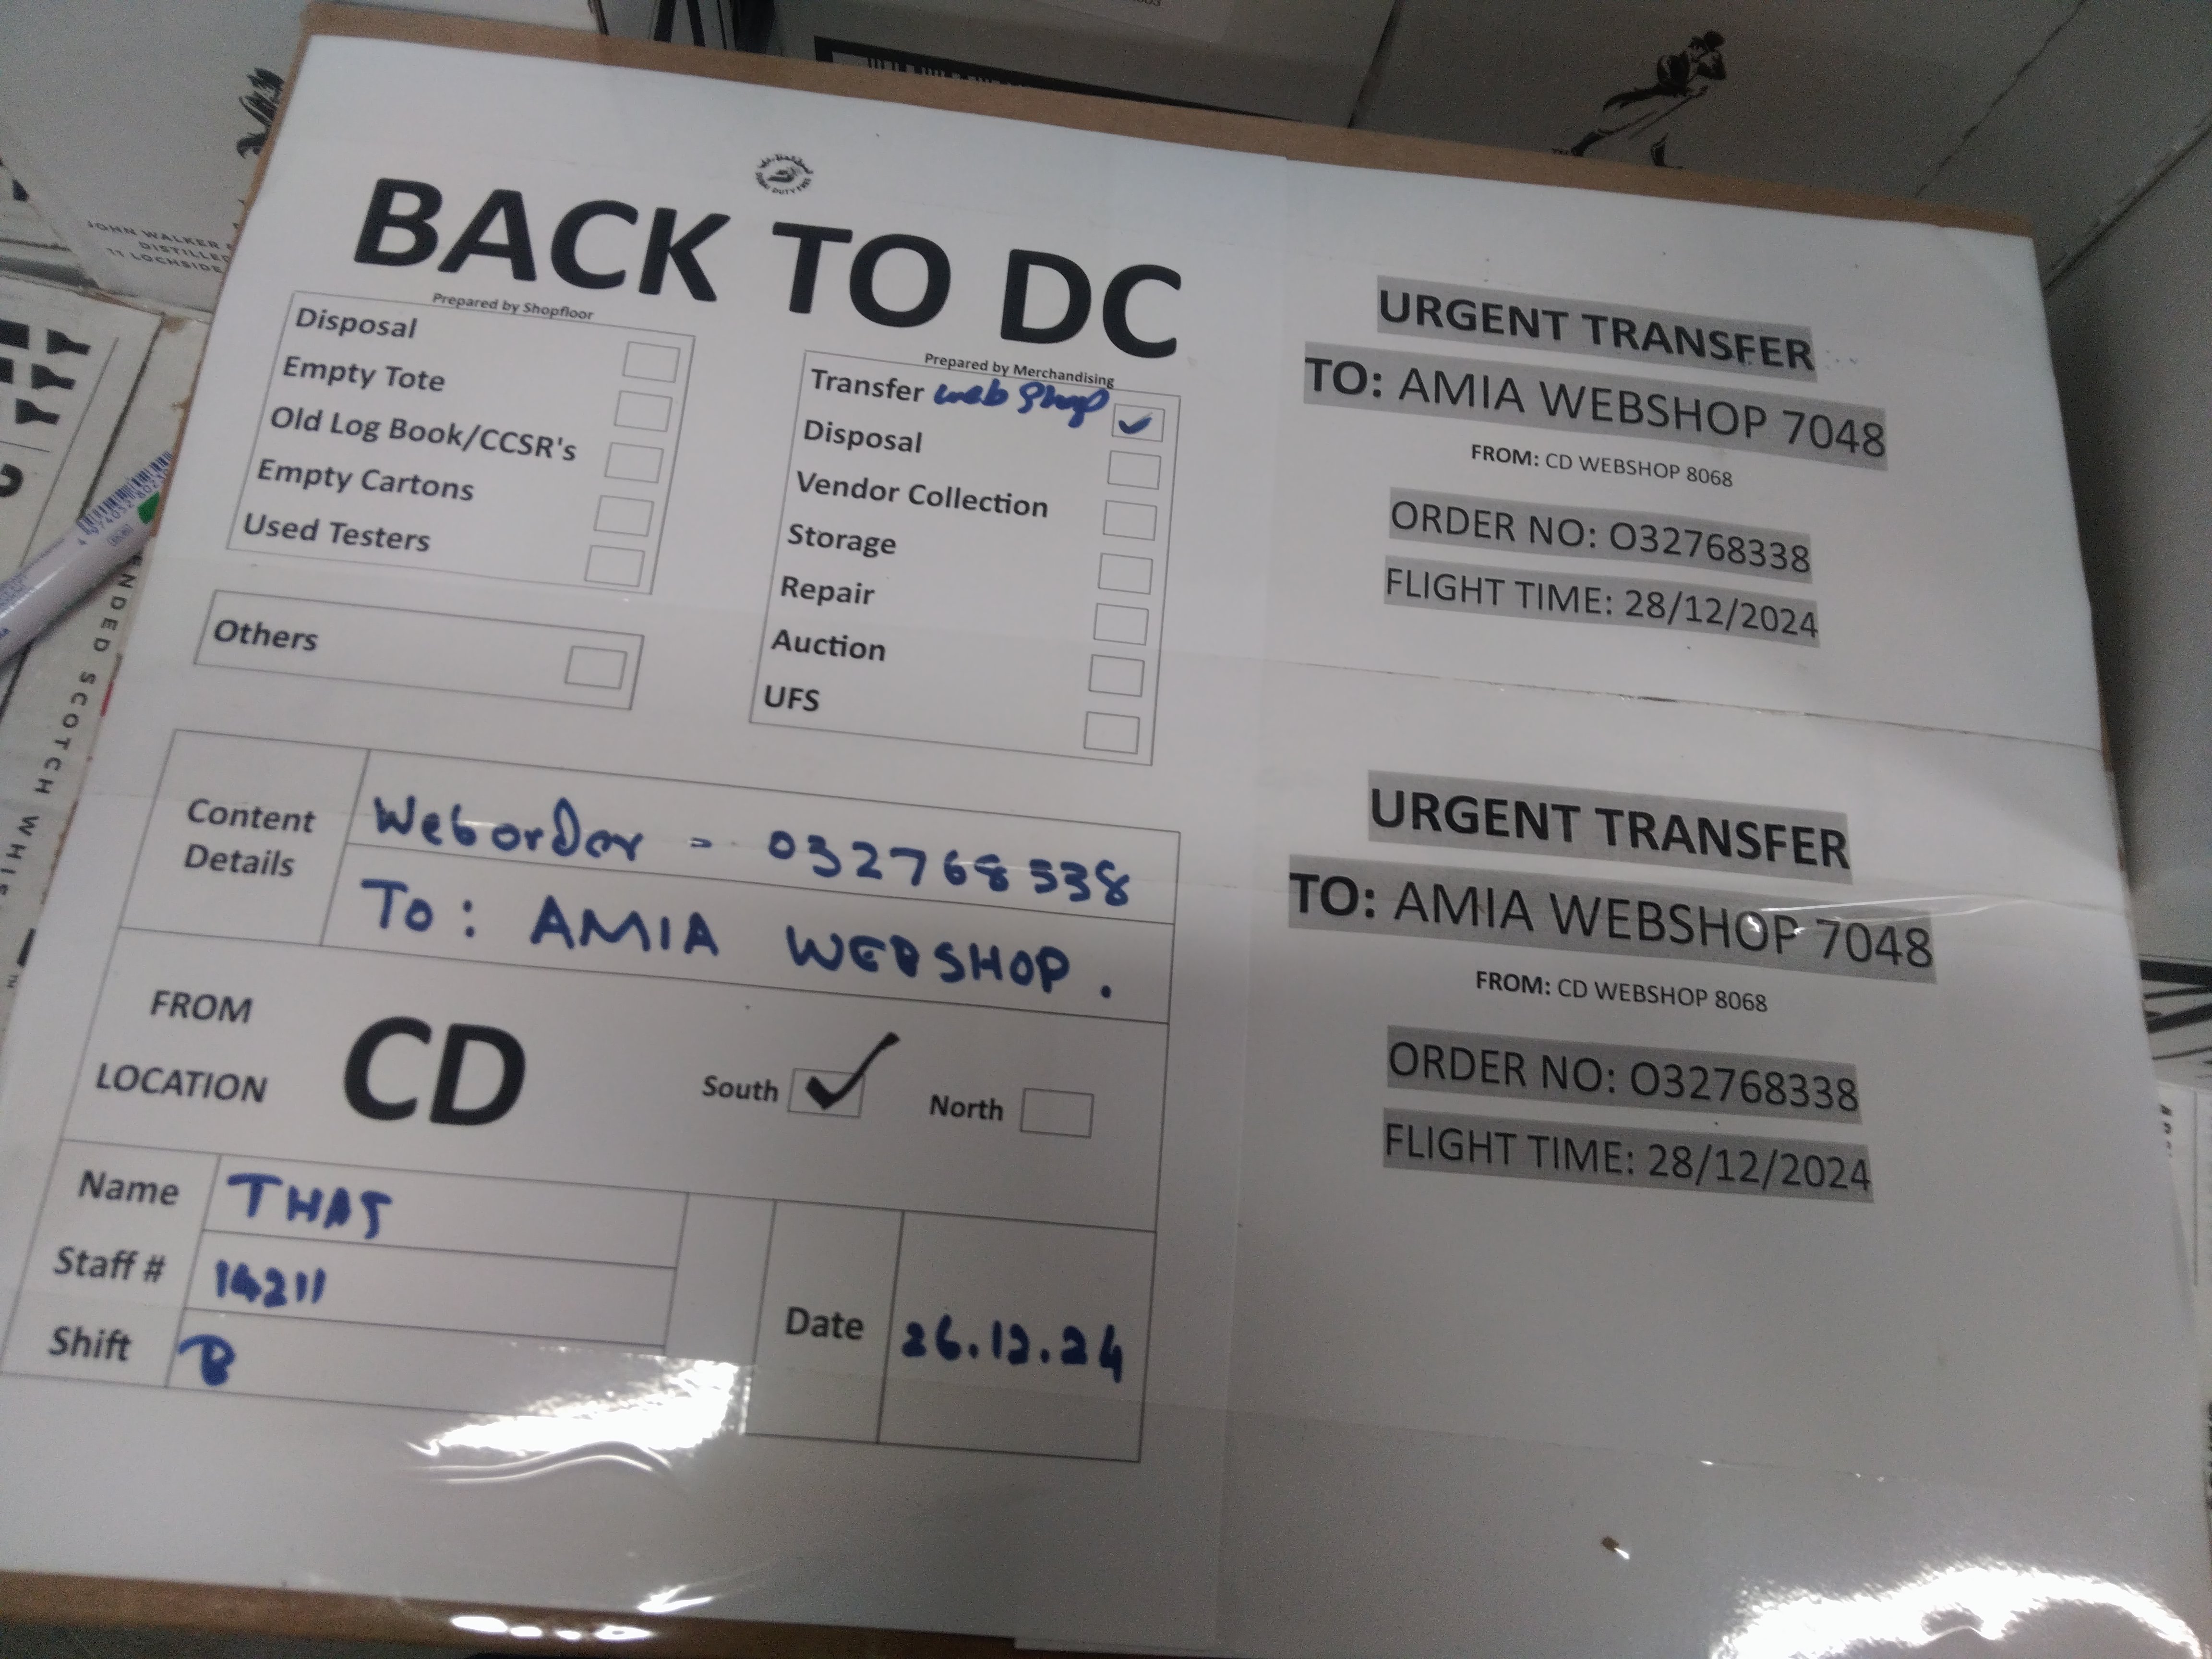 JOHN WALKER
DISTILLE
11 LOCHSIDE
ENDED SCOTCH WHIS
DUBAI DUTY FREE
BACK TO DC
Prepared by Shopfloor
Disposal
Empty Tote
Old Log Book/CCSR's
Empty Cartons
Used Testers
Others
Prepared by Merchandising
Transfer web shop
Disposal
Vendor Collection
Storage
Repair
Auction
UFS
Content
Details
Weborder - 032768338
To: AMIA WEBSHOP.
FROM
LOCATION
CD
South
North
Name THAJ
Staff # 14211
Shift B
Date 26.12.24
URGENT TRANSFER
TO: AMIA WEBSHOP 7048
FROM: CD WEBSHOP 8068
ORDER NO: O32768338
FLIGHT TIME: 28/12/2024
URGENT TRANSFER
TO: AMIA WEBSHOP 7048
FROM: CD WEBSHOP 8068
ORDER NO: O32768338
FLIGHT TIME: 28/12/2024